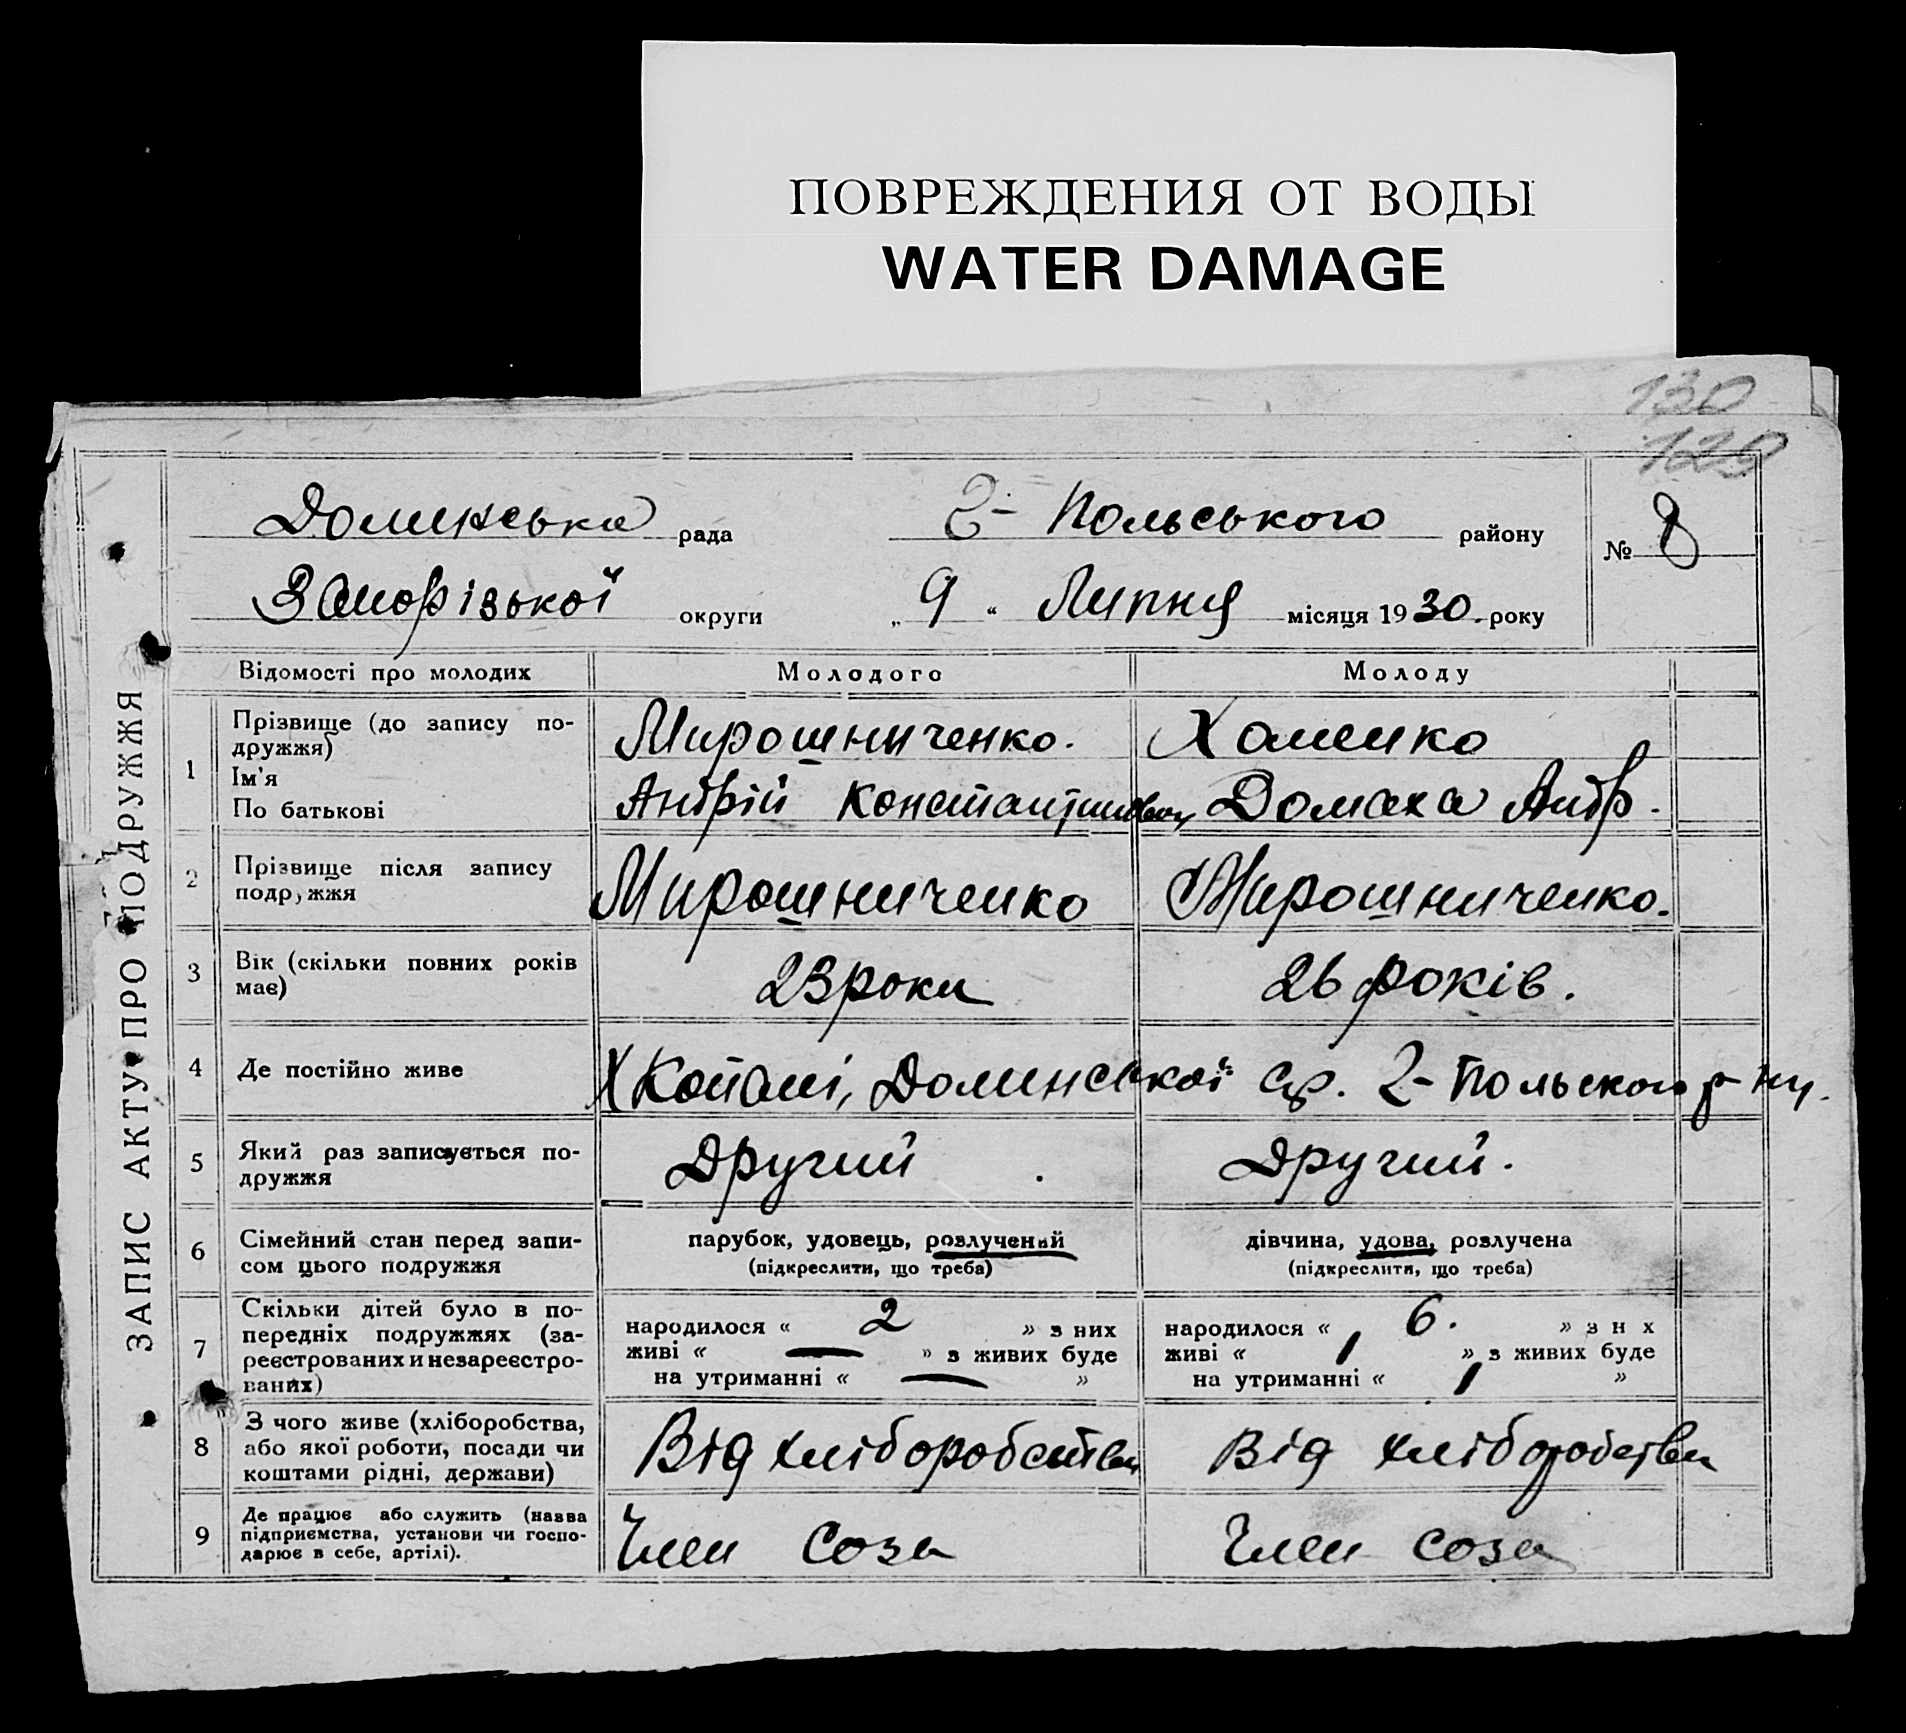 ПОВРЕЖДЕНИЯ ОТ ВОДЫ
WATER DAMAGE
130
129
ЗАПИС АКТУ ПРО ПОДРУЖЖЯ
Долинська рада 2- Польського району № 8
Запорізької округи „ 9 “ Липня місяця 1930. року
Відомості про молодих Молодого Молоду
1 Прізвище (до запису по-
дружжя) Мирошниченко. Хоменко
Ім'я
По батькові Андрій Константинович Домаха Андр.
2 Прізвище після запису
подружжя Мирошниченко Мирошниченко.
3 Вік (скільки повних років
має) 23 роки 26 років.
4 Де постійно живе Х Копані, Долинської с/р. 2- Польського р-ну.
5 Який раз записується по-
дружжя Другий . Другий.
6 Сімейний стан перед запи-
сом цього подружжя парубок, удовець, розлучений дівчина, удова, розлучена
(підкреслити, що треба) (підкреслити, що треба)
7 Скільки дітей було в по-
передніх подружжях (за-
реєстрованих и незареєстро-
ваних)
народилося « 2 » з них народилося « 6. » з н х
живі « — » з живих буде живі « 1 » з живих буде
на утриманні « — » на утриманні « 1 »
8 З чого живе (хліборобства,
або якої роботи, посади чи
коштами рідні, держави) Від хліборобства Від хліборобства
9 Де працює або служить (назва
підприємства, установи чи госпо-
дарює в себе, артілі). Член Соза Член Соза